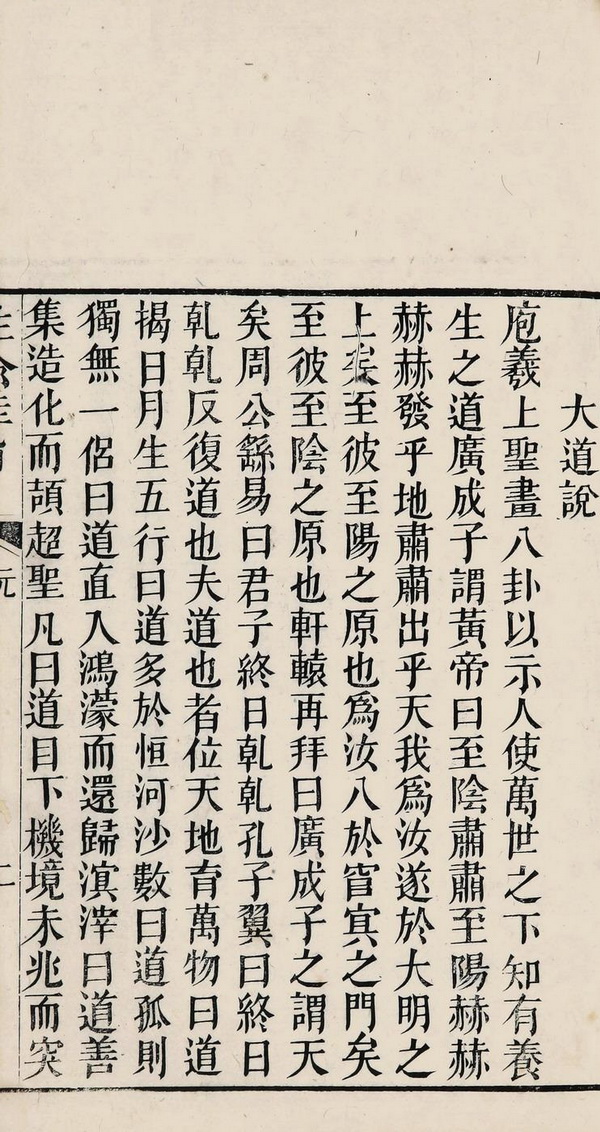 大道說
庖羲上聖畫八卦以示人使萬世之下知有養
生之道廣成子謂黃帝曰至陰肅肅至陽赫赫
赫赫發乎地肅肅出乎天我爲汝遂於大明之
上矣至彼至陽之原也爲汝入於窅冥之門矣
至彼至陰之原也軒轅再拜曰廣成子之謂天
矣周公繇易曰君子終日乹乹孔子翼曰終日
乹乹反復道也夫道也者位天地育萬物曰道
揭日月生五行曰道多於恒河沙數曰道孤則
獨無一侶曰道直入鴻濛而還歸溟涬曰道善
集造化而頡超聖凡曰道目下機境未兆而突
元
二